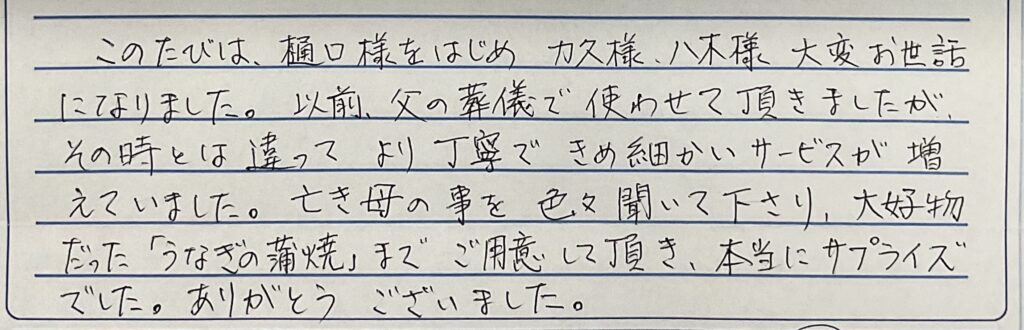 このたびは、樋口様をはじめ 力久様、八木様 大変お世話
になりました。以前、父の葬儀で使わせて頂きましたが、
その時とは違って より丁寧で きめ細かいサービスが 増
えていました。亡き母の事を 色々聞いて下さり、大好物
だった「うなぎの蒲焼」まで ご用意して頂き、本当にサプライズ
でした。ありがとう ございました。